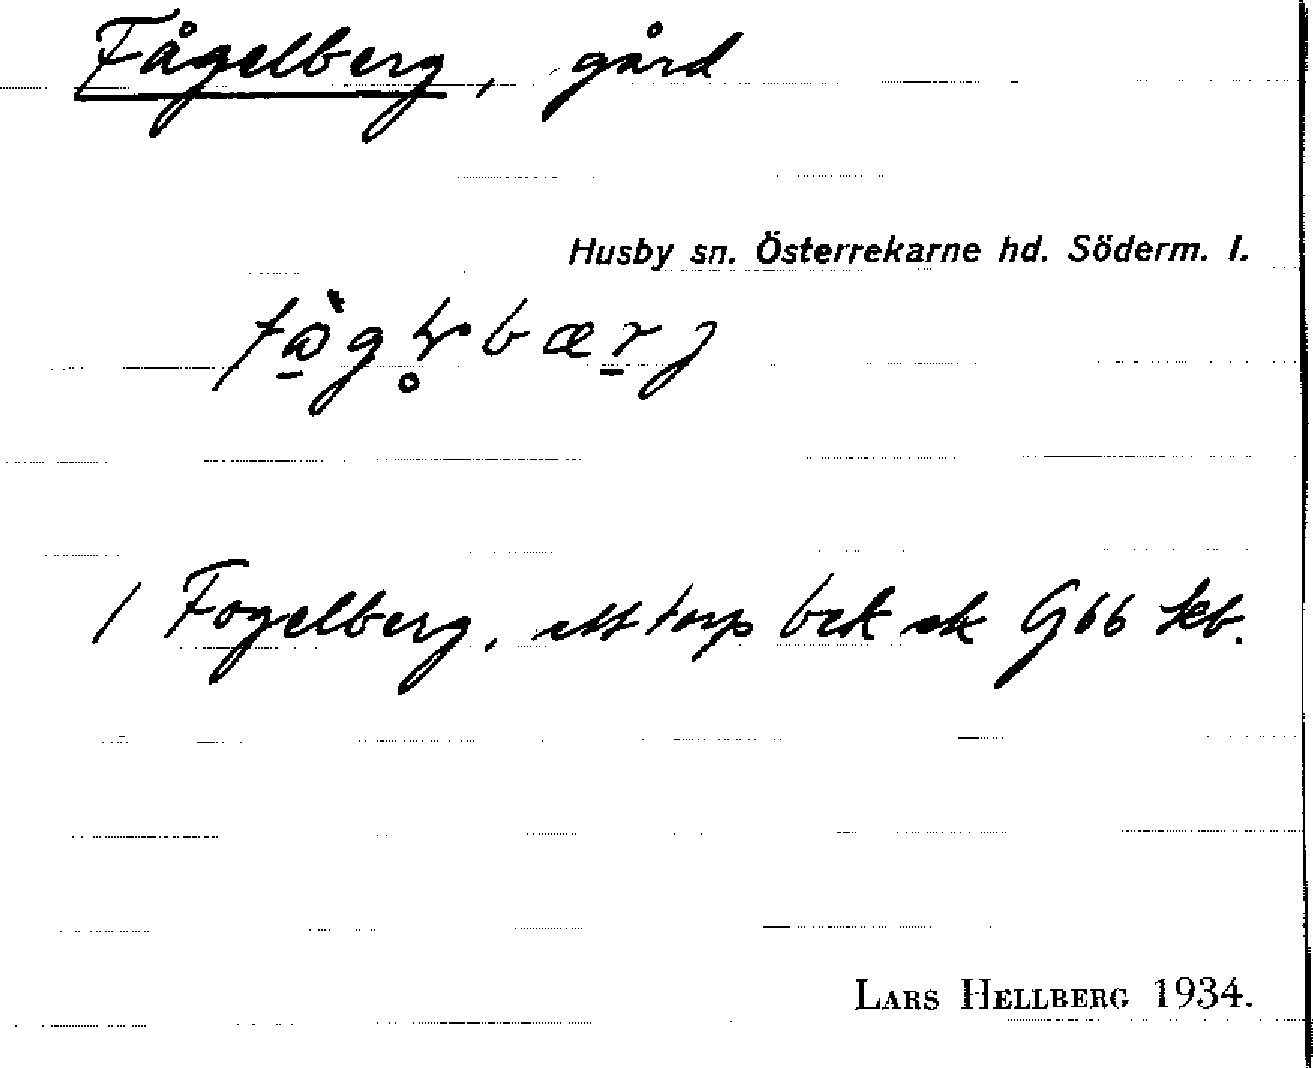 Fågelberg, gård
Husby sn. Österrekarne hd. Söderm. l.
1 Fogelberg, ett torp bek sk Gbb kb.
LARS HELLBERG 1934.